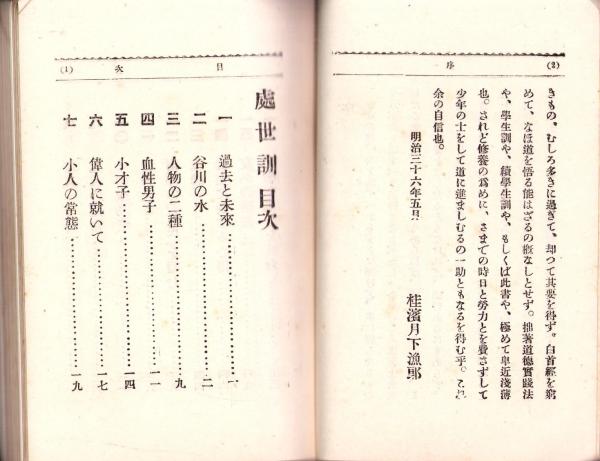 序
(2)
きもの、むしろ多きに過ぎて、却つて其要を得ず。白首經を窮
めて、なほ道を悟る能はざるの嘅なしとせず。拙著道德實踐法
や、學生訓や、續學生訓や、もしくば此書や、極めて卑近淺薄
也。されど修養の爲めに、さまでの時日と勞力とを費さずして
少年の士をして道に進ましむるの一助ともなるを得む乎。これ
余の自信也。
明治三十六年五月
桂濱月下漁郎
目次
(1)
處世訓目次
一 過去と未來…………一
二 谷川の水…………二
三 人物の二種…………九
四 血性男子…………一一
五 小才子…………一四
六 偉人に就いて…………一七
七 小人の常態…………一九